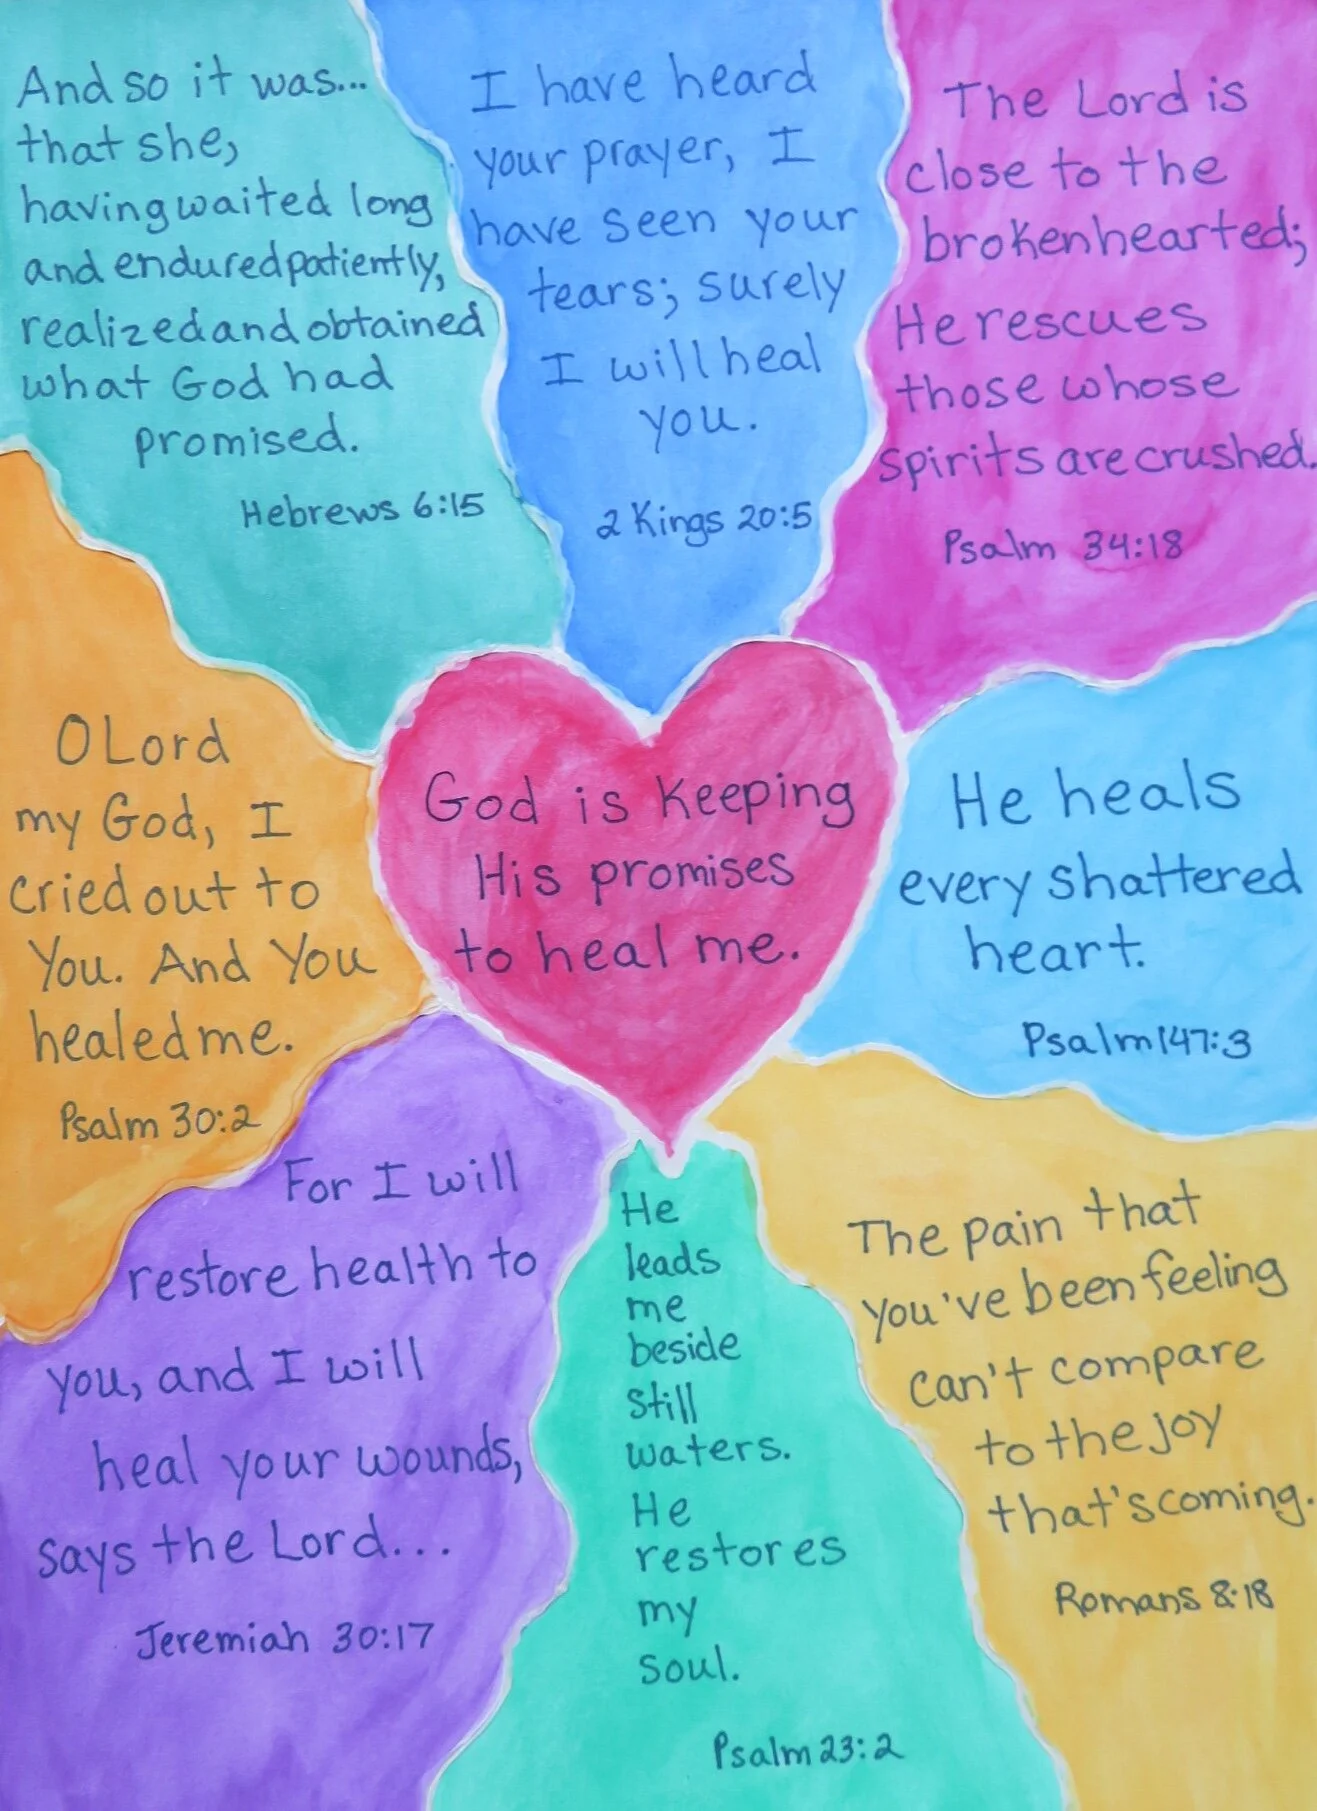 And so it was...
that she,
having waited long
and endured patiently,
realized and obtained
what God had
promised.
Hebrews 6:15
I have heard
your prayer, I
have seen your
tears; surely
I will heal
you.
2 Kings 20:5
The Lord is
close to the
brokenhearted;
He rescues
those whose
spirits are crushed.
Psalm 34:18
O Lord
my God, I
cried out to
You. And You
healed me.
Psalm 30:2
God is keeping
His promises
to heal me.
He heals
every shattered
heart.
Psalm 147:3
For I will
restore health to
you, and I will
heal your wounds,
says the Lord...
Jeremiah 30:17
He
leads
me
beside
still
waters.
He
restores
my
soul.
Psalm 23:2
The pain that
you've been feeling
can't compare
to the joy
that's coming.
Romans 8:18